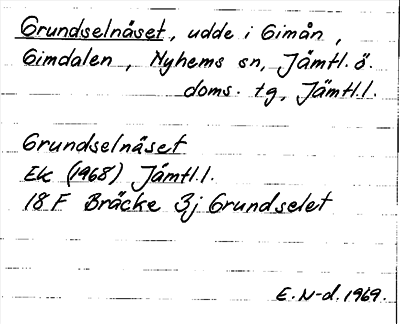 Grundselnäset, udde i Gimån,
Gimdalen, Nyhems sn, Jämtl. ö.
doms. tg, Jämtl.l.
Grundselnäset
Ek (1968) Jämtl.l.
18 F Bräcke 3j Grundselet
E. N-d. 1969.